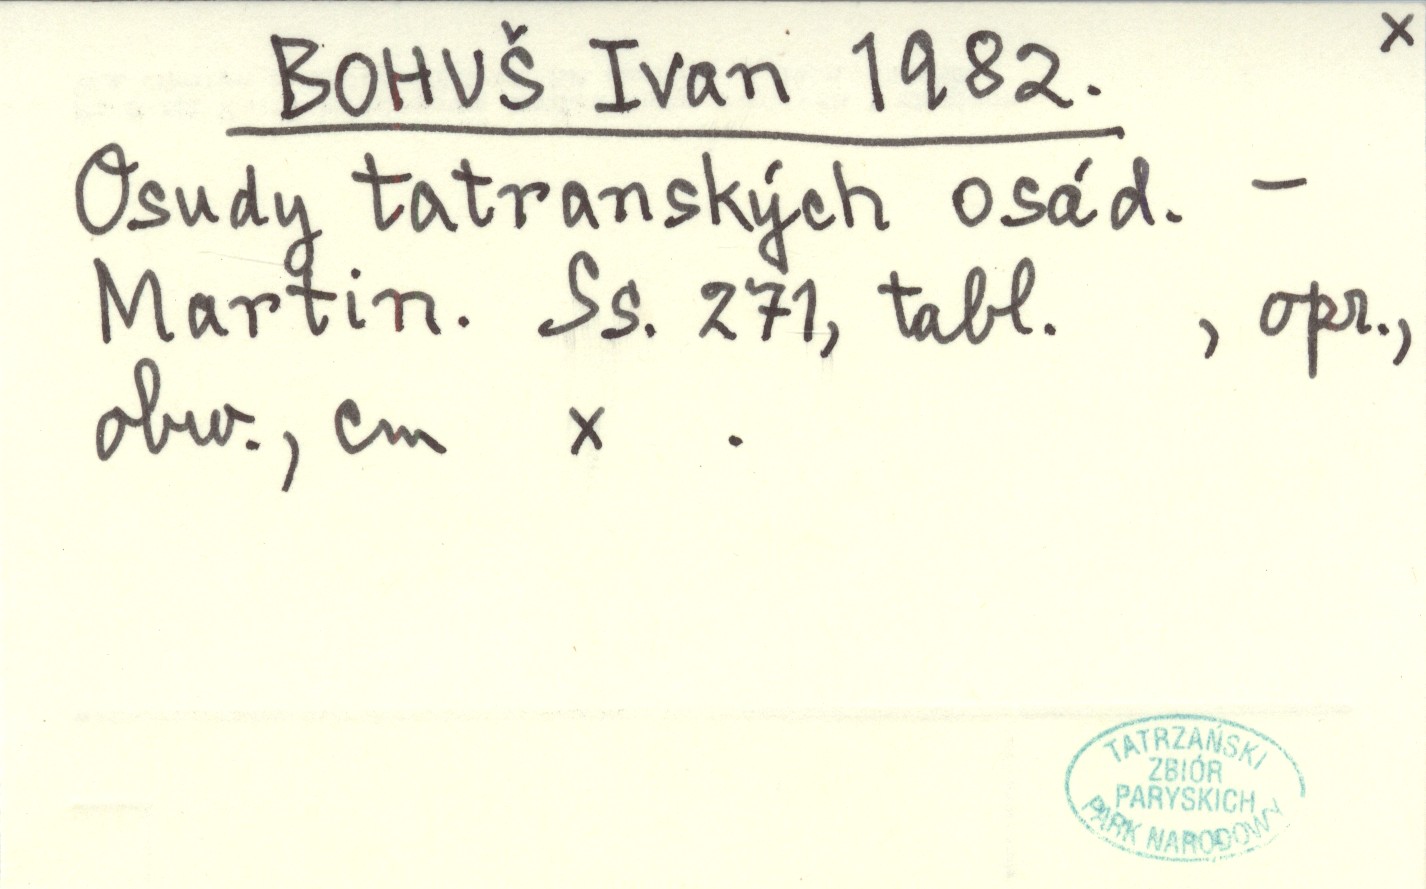 x
BOHUŠ Ivan 1982.
Osudy tatranských osád. –
Martin. Ss. 271, tabl. , opr.,
obw., cm x .
TATRZAŃSKI
ZBIÓR
PARYSKICH
PARK NARODOWY